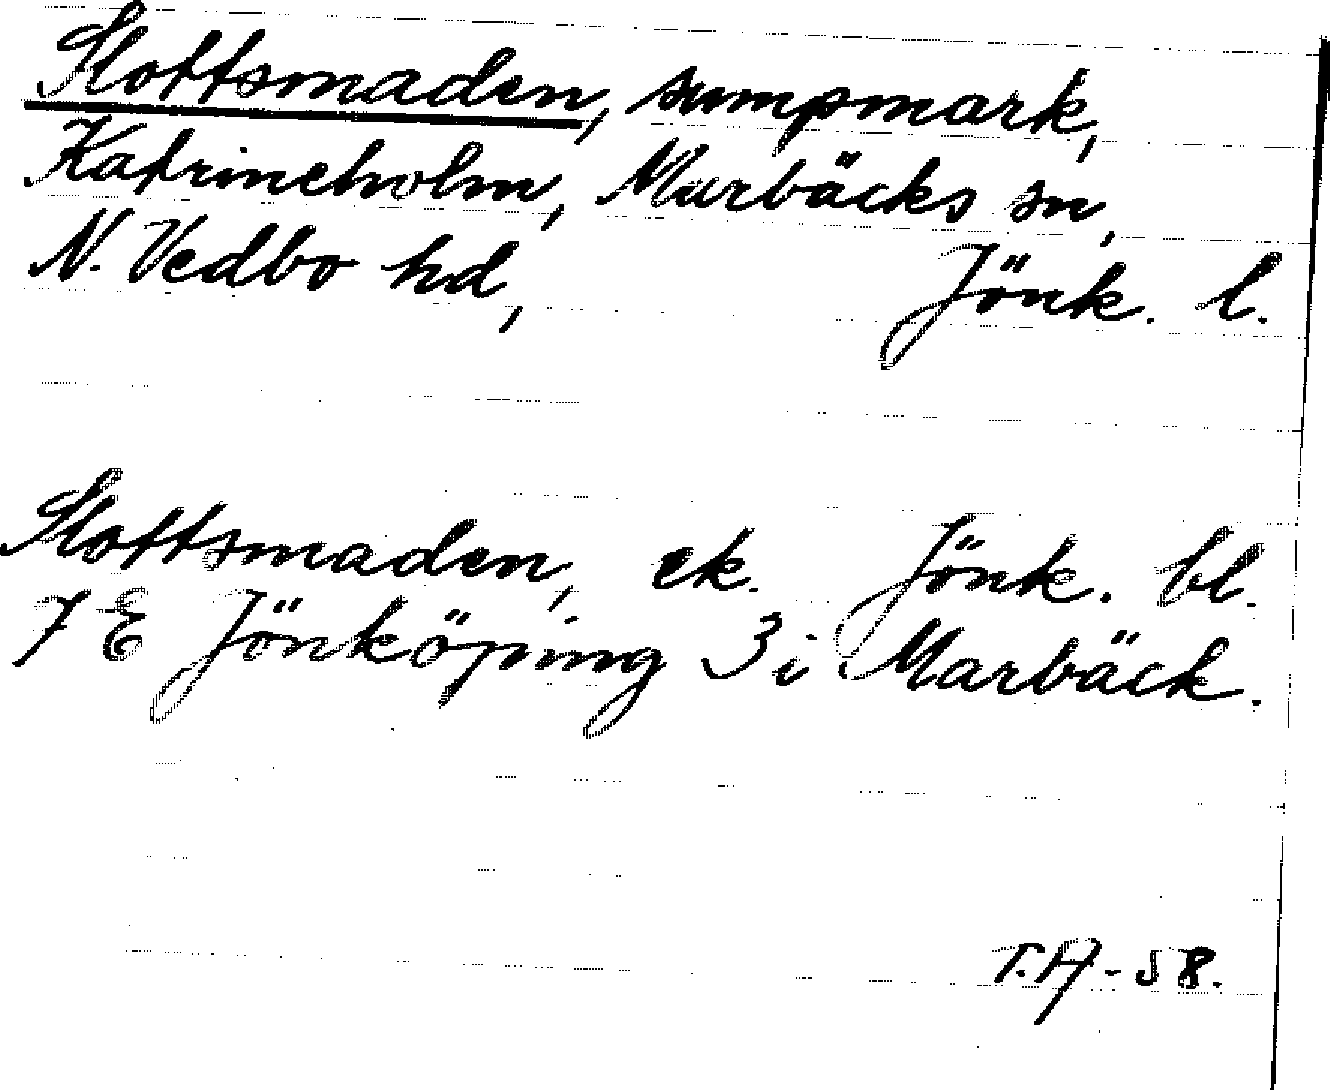 Slottsmaden, sumpmark,
Katrineholm, Marbäcks sn,
N. Vedbo hd, Jönk. l.
Slottsmaden, ek. Jönk. bl.
7 E Jönköping 3 i Marbäck.
T.A-58.